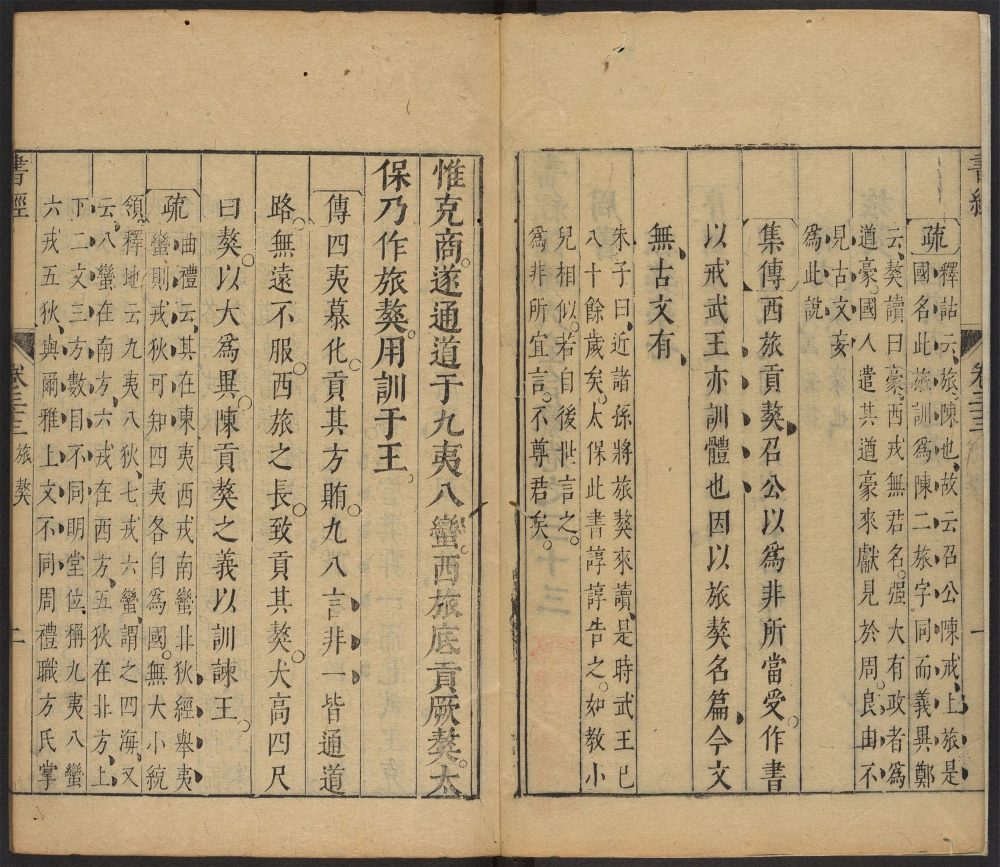 書經 卷三十三 一
疏 釋詁云、旅、陳也、故云召公陳戒、上旅是
國名、此旅訓爲陳、二旅字同而義異、鄭
云、獒讀曰豪、西戎無君名。强大有政者爲
道豪。國人遣其道豪來獻見於周。良由不
見古文、妄
爲此說
集傳西旅貢獒、召公以爲非所當受。作書
以戒武王亦訓體也因以旅獒名篇、今文
無、古文有、
朱子曰、近諸孫將旅獒來讀、是時武王已
八十餘歲矣。太保此書諄諄告之。如教小
兒相似。若自後世言之。
爲非所宜言。不尊君矣。
惟克商。遂通道于九夷八蠻。西旅底貢厥獒。太
保乃作旅獒。用訓于王。
傳四夷慕化。貢其方賄。九八言非一皆通道
路。無遠不服。西旅之長。致貢其獒。犬高四尺
曰獒。以大爲異。陳貢獒之義以訓諫王。
疏 曲禮云、其在東夷西戎南蠻北狄、經舉夷
蠻、則戎狄可知、四夷各自爲國。無大小統
領。釋地云、九夷八狄、七戎六蠻、謂之四海、又
云、八蠻在南方、六戎在西方、五狄在北方、上
下二文、三方數目不同、明堂位稱九夷八蠻
六戎五狄、與爾雅上文不同、周禮職方氏掌
書經 卷三十三 旅獒 二